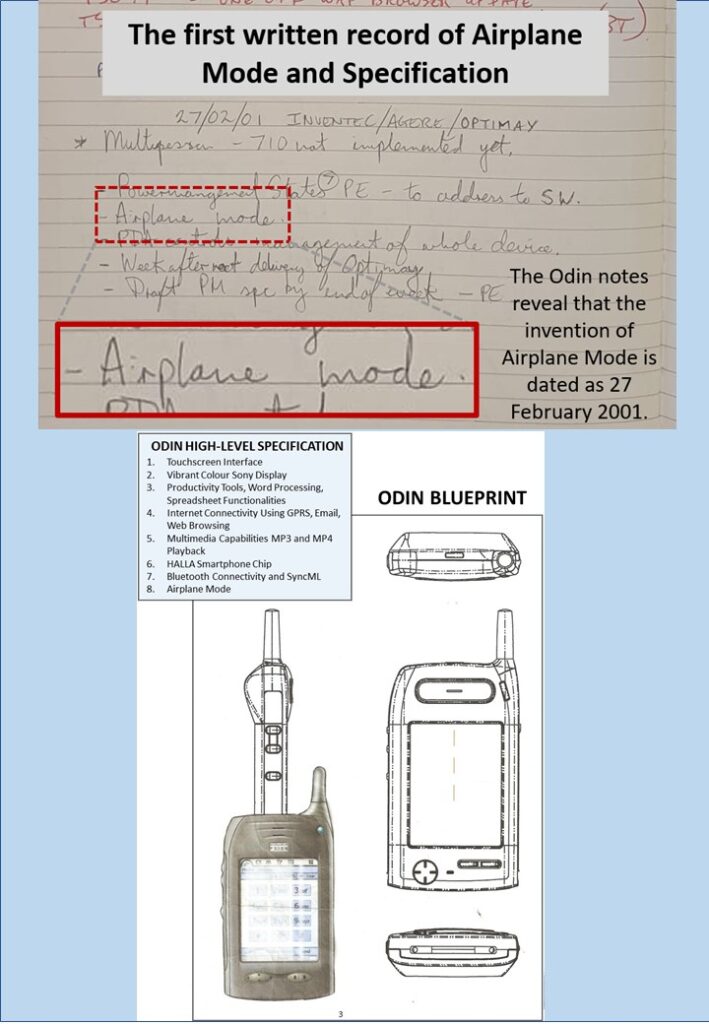 ONE OFF WAP BROWSER
The first written record of Airplane
Mode and Specification
27/02/01 INVENTEC/AGERE/OPTIMAY
* - 710 not implemented yet.
- Powermanagement States PE - to address to SW.
- Airplane mode.
- PDA controls management of whole device.
- Week after next delivery of Optimay
- Draft PM spc by end of week - PE
- Airplane mode.
The Odin notes
reveal that the
invention of
Airplane Mode is
dated as 27
February 2001.
ODIN HIGH-LEVEL SPECIFICATION
1. Touchscreen Interface
2. Vibrant Colour Sony Display
3. Productivity Tools, Word Processing,
Spreadsheet Functionalities
4. Internet Connectivity Using GPRS, Email,
Web Browsing
5. Multimedia Capabilities MP3 and MP4
Playback
6. HALLA Smartphone Chip
7. Bluetooth Connectivity and SyncML
8. Airplane Mode
ODIN BLUEPRINT
3